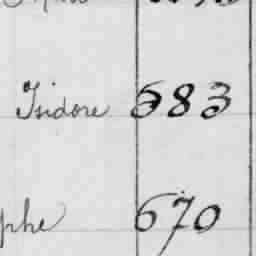 Isidore 583
phe 670